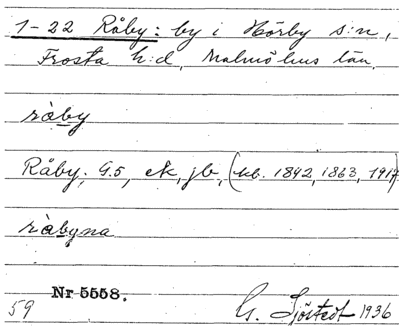 1-22 Råby: by i Hörby s:n,
Frosta h:d, Malmöhus län.
ràby
Råby, G5, ek, jb, (kb. 1842, 1863, 1917)
ràbyna
Nr 5558.
59 G. Sjöstedt 1936